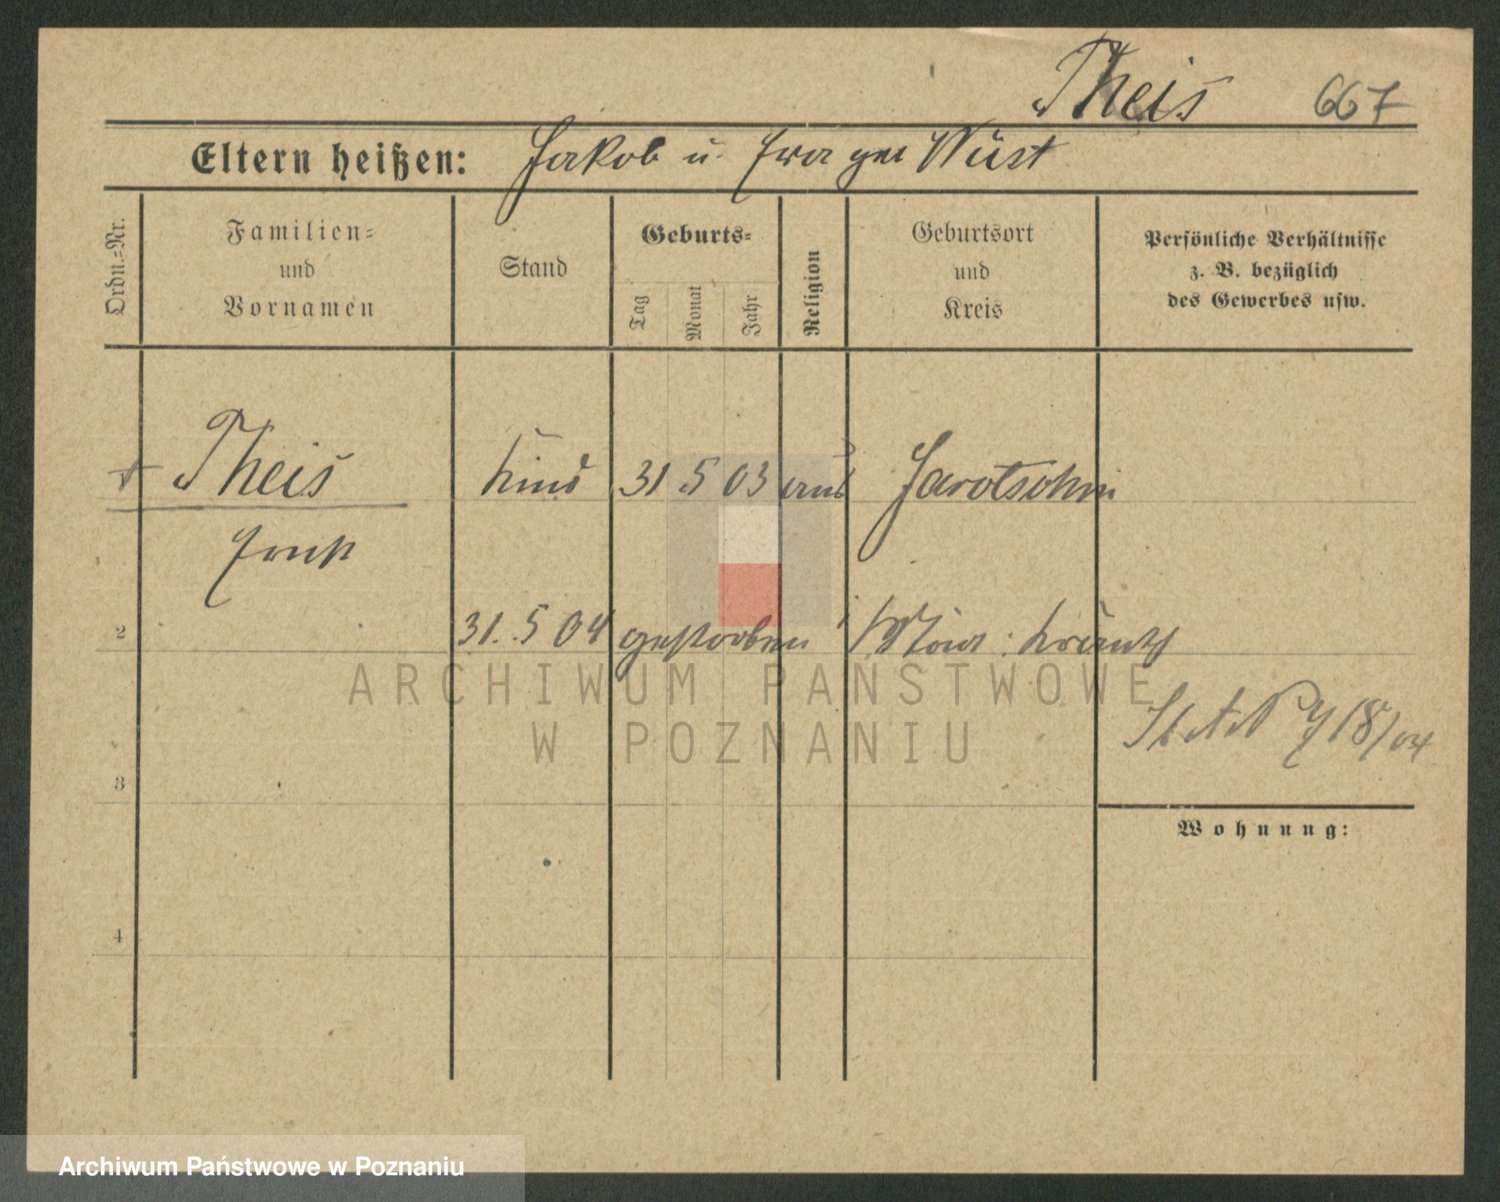 Theis 667
Eltern heißen: Jakob u. Eva geb Wüst
Ordn.=Nr.
Familien=
und
Vornamen
Stand
Geburts=
Tag
Monat
Jahr
Religion
Geburtsort
und
Kreis
Persönliche Verhältnisse
z. B. bezüglich
des Gewerbes usw.
Theis Kind 31 5 03 Jarotschin
Ernst
2 31. 5 04 gestorben
18/04
3
Wohnung:
4
ARCHIWUM PAŃSTWOWE
W POZNANIU
Archiwum Państwowe w Poznaniu